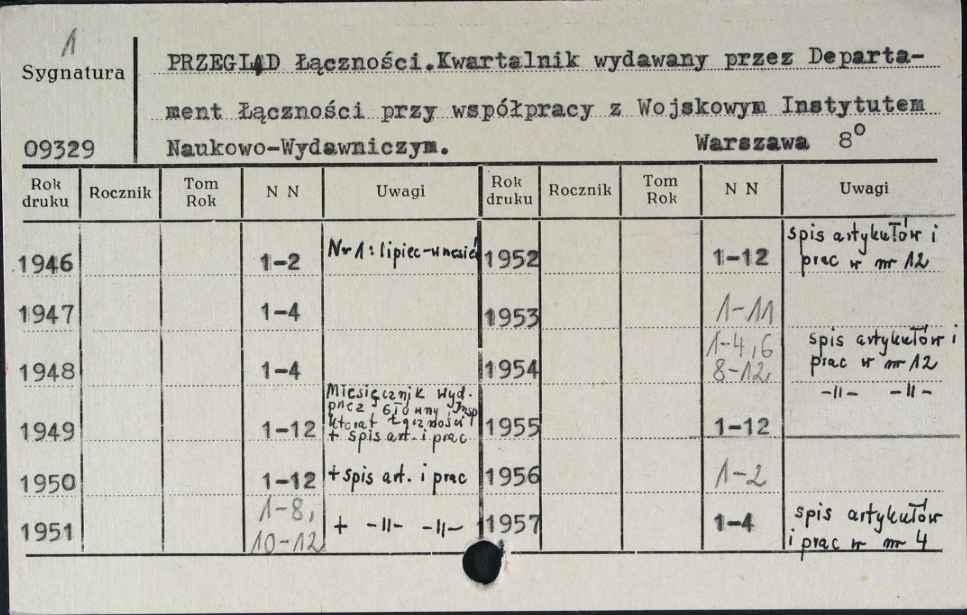 1
Sygnatura
09329
PRZEGLĄD Łączności. Kwartalnik wydawany przez Departa-
ment Łączności przy współpracy z Wojskowym Instytutem
Naukowo-Wydawniczym. Warszawa 8°
Rok druku Rocznik Tom Rok N N Uwagi Rok druku Rocznik Tom Rok N N Uwagi
1946 1-2 Nr 1: lipiec-wrzesień 1952 1-12 spis artykułów i prac w nr 12
1947 1-4 1953 1-11
1948 1-4 1954 1-4, 6 8-12, spis artykułów i prac w nr 12
1949 1-12 Miesięcznik wyd. przez Główny Inspektorat Łączności + spis art. i prac 1955 1-12 -„- -„-
1950 1-12 + spis art. i prac 1956 1-2
1951 1-8, 10-12 + -„- -„- 1957 1-4 spis artykułów i prac w nr 4